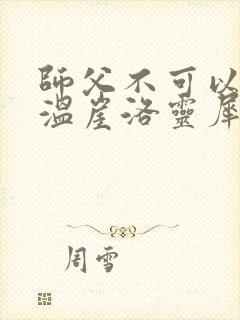 師父不可以
溫崖洛靈犀
周雪